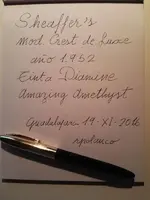 Sheaffer's
mod Crest de Luxe
año 1.952
Tinta Diamine
Amazing Amethyst
Guadalajara 19-XI-2012